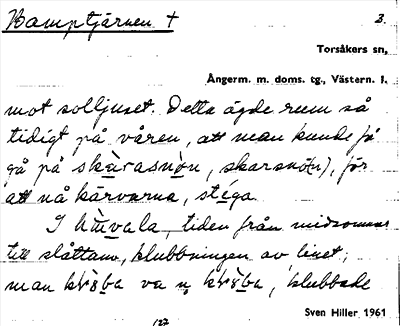 Kamptjärnen + 3.
Torsåkers sn,
Ångerm. m. doms. tg., Västern. l.
mot solljuset. Detta ägde rum så
tidigt på våren, att man kunde få
gå på skàrasnòn, skarsnö(n), för
att nå kärvarna, stéga.
I hùvala, tiden från midsommar
till slåttann, klubbningen av linet;
man va klubbade
Sven Hiller 1961
127